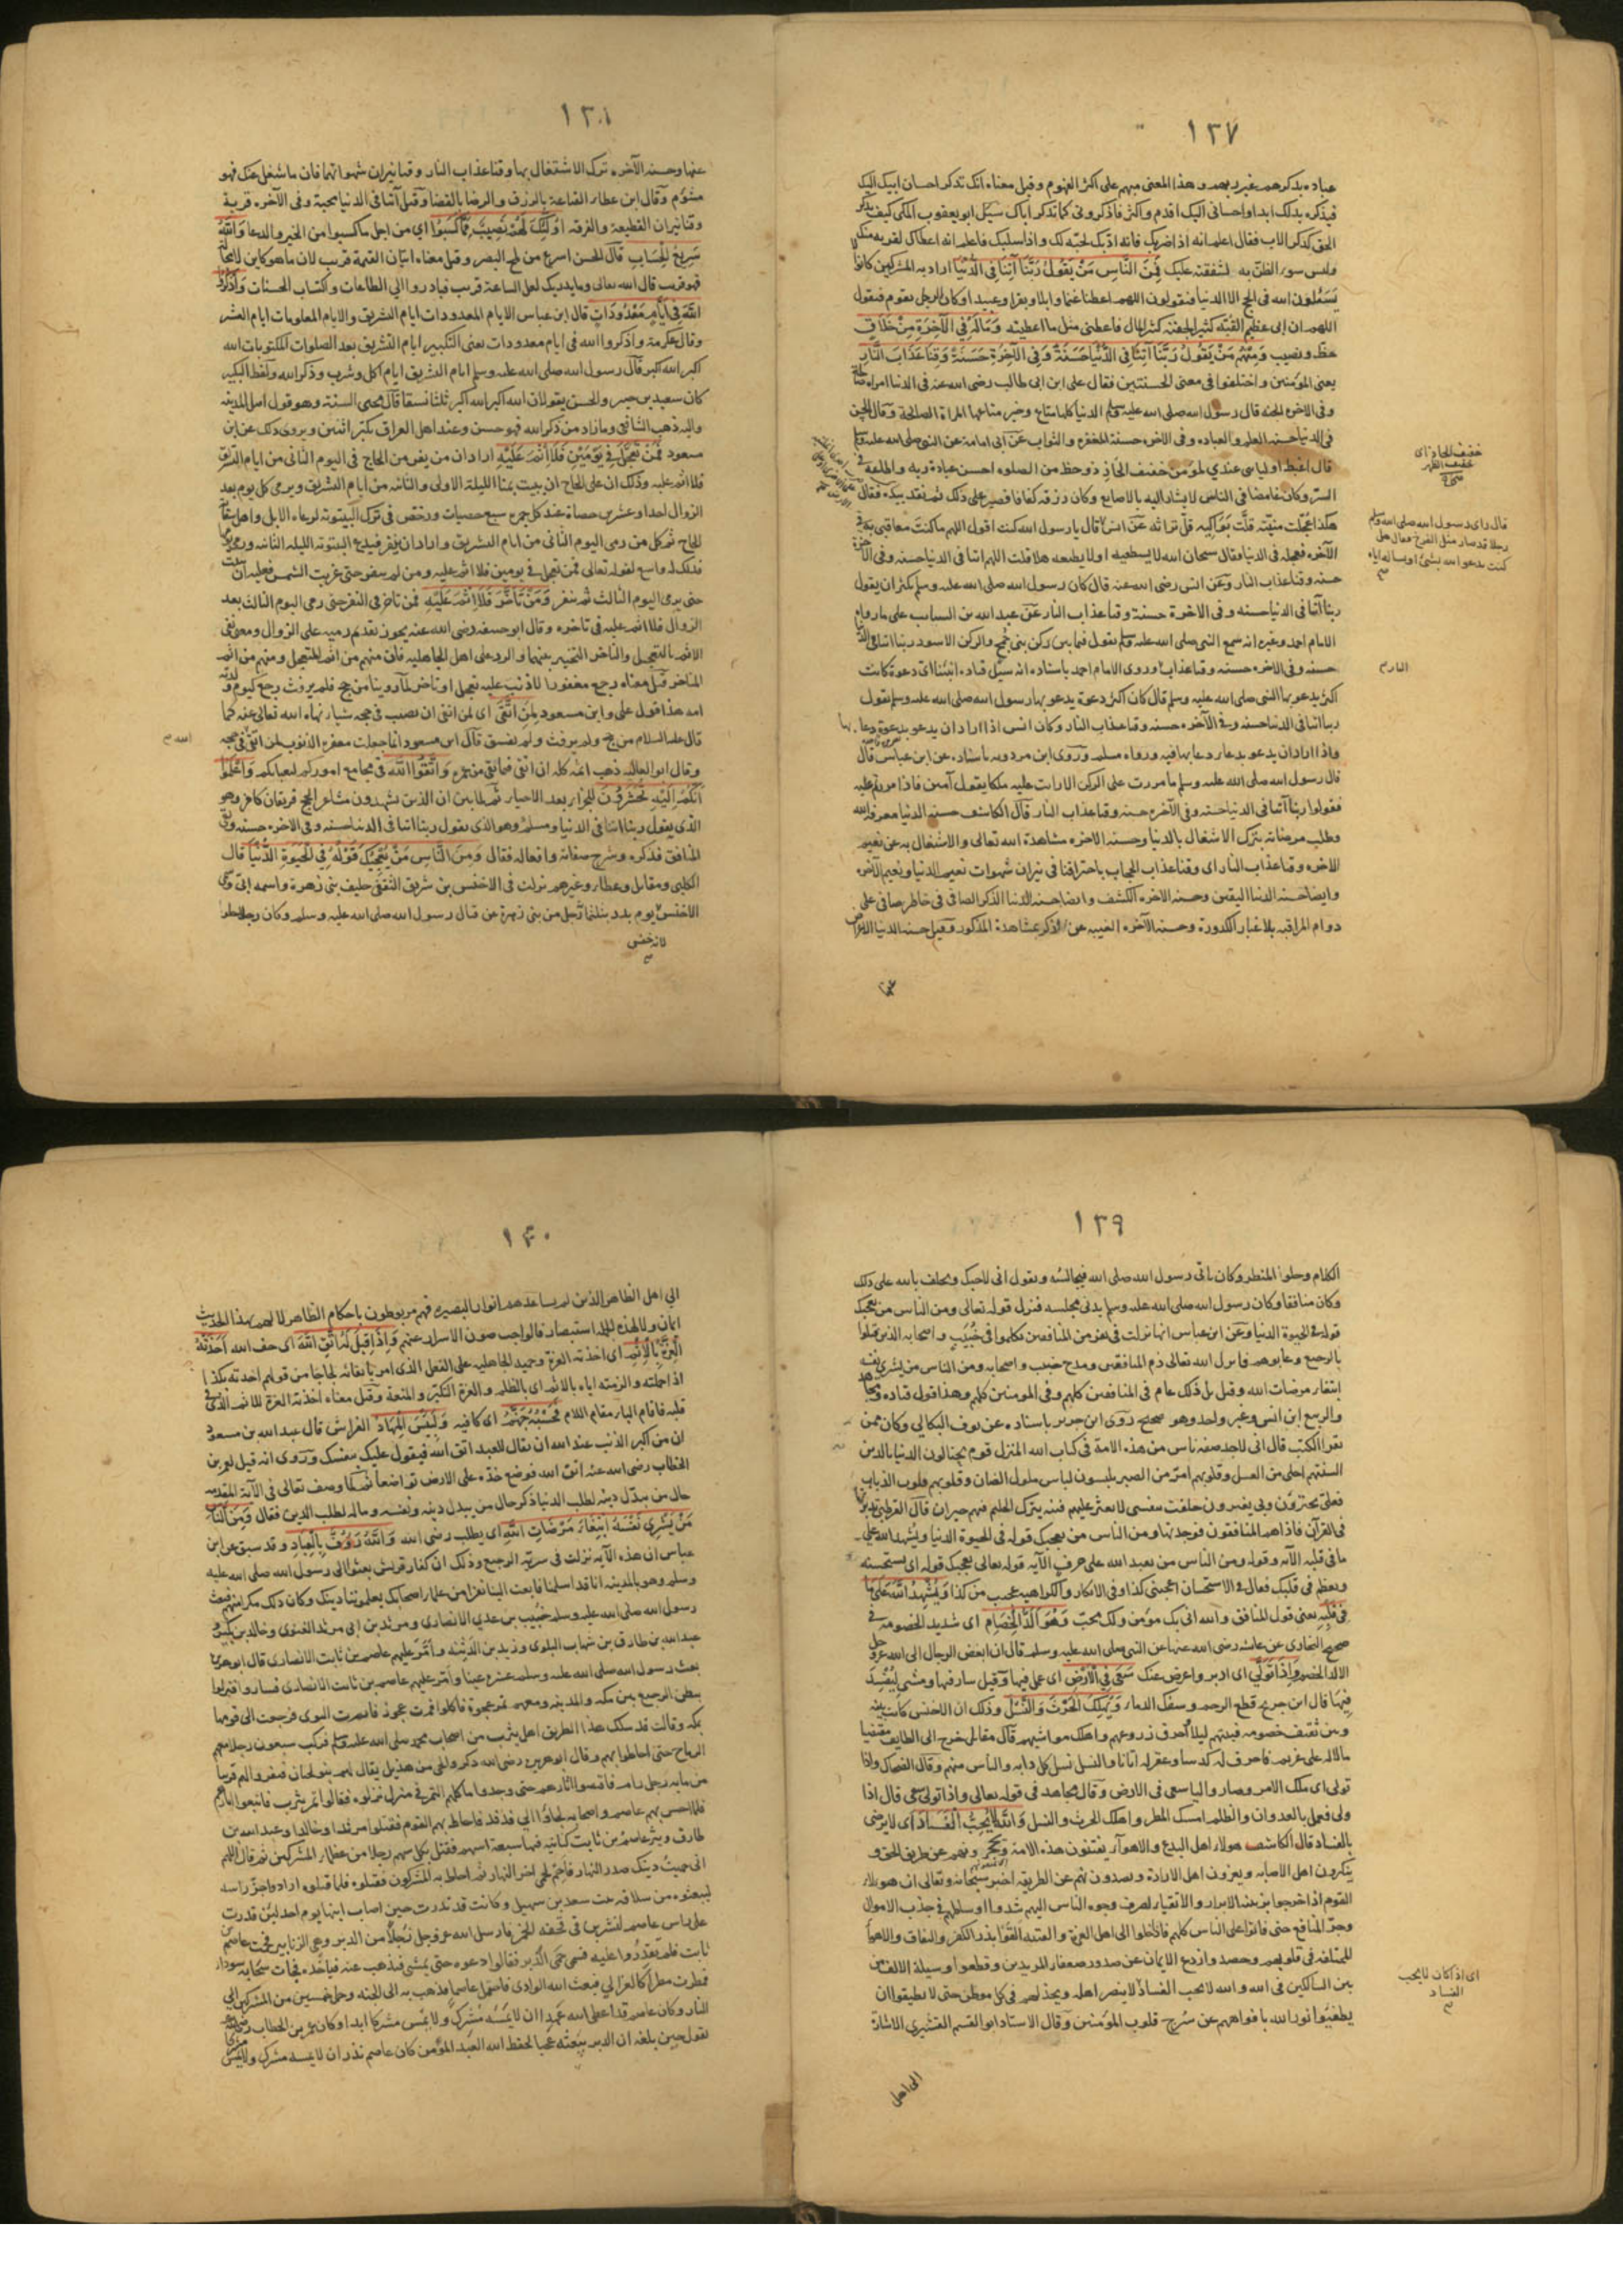 ١٣٧
عباده يذكرهم غير ربهم وهذا المعنى مبهم على اكثر الفهوم وقيل معناه انك تذكر احسان ابيك اليك
فيذكره بذلك ابدا واحسانى اليك اقدم واكثر فاذكرونى كما تذكر اباك سئل ابو يعقوب المكى كيف يذكر
الحق كذكر الاب فقال اعلم انه اذا ضربك فانه ادبك لحبه لك واذا سلبك فاعلم انه اعطاك لقربه منك
وليس سوء الظن به لشفقته عليك فَمِنَ النَّاسِ مَنْ يَقُولُ رَبَّنَا آتِنَا فِي الدُّنْيَا اراد به المشركين كانوا
يسئلون الله فى الحج الا الدنيا فيقولون اللهم اعطنا غنما وابلا وبقرا وعبيدا وكان الرجل يقوم فيقول
اللهم ان ابى عظيم القبة كثير الجفنة كثير المال فاعطنى مثل ما اعطيته وَمَا لَهُ فِي الْآخِرَةِ مِنْ خَلَاقٍ
حظ ونصيب وَمِنْهُمْ مَنْ يَقُولُ رَبَّنَا آتِنَا فِي الدُّنْيَا حَسَنَةً وَفِي الْآخِرَةِ حَسَنَةً وَقِنَا عَذَابَ النَّارِ
يعنى المؤمنين واختلفوا فى معنى الحسنتين فقال على ابن ابى طالب رضى الله عنه فى الدنيا امراة صالحة
وفى الاخرة الجنة قال رسول الله صلى الله عليه وسلم الدنيا كلها متاع وخير متاعها المراة الصالحة وقال الحسن
فى الدنيا حسنة العلم والعبادة وفى الاخرة حسنة المغفرة والثواب عن ابى امامة عن النبى صلى الله عليه وسلم
قال اغبط اوليائى عندي لمؤمن خفيف الحاذ ذو حظ من الصلوة احسن عبادة ربه واطاعه فى
السر وكان غامضا فى الناس لا يشار اليه بالاصابع وكان رزقه كفافا فصبر على ذلك ثم نقد بيده فقال
هكذا عجلت منيته قلت بواكيه قل تراثه عن انس قال يا رسول الله كنت اقول اللهم ما كنت معاقبى به فى
الآخرة فعجله فى الدنيا فقال سبحان الله لا يستطيعه او لا يطيقه هلا قلت اللهم اتنا فى الدنيا حسنة وفى الآخرة
حسنة وقنا عذاب النار وعن انس رضى الله عنه قال كان رسول الله صلى الله عليه وسلم يكثر ان يقول
ربنا آتنا فى الدنيا حسنة وفى الاخرة حسنة وقنا عذاب النار عن عبد الله بن السائب على ما رواه
الامام احمد وغيره انه سمع النبى صلى الله عليه وسلم يقول فيما بين ركن بنى جمح والركن الاسود ربنا اتنا فى الدنيا
حسنة وفى الاخرة حسنة وقنا عذاب وروى الامام احمد باسناده انه سئل قتادة انسا اى دعوة كانت
اكثر يدعو بها النبى صلى الله عليه وسلم قال كان اكثر دعوة يدعو بها رسول الله صلى الله عليه وسلم يقول
ربنا اتنا فى الدنيا حسنة وفى الآخرة حسنة وقنا عذاب النار وكان انس اذا اراد ان يدعو بدعوة دعا بها
واذا اراد ان يدعو بدعاء دعا بها فيه ورواه مسلم وروى ابن مردويه باسناده عن ابن عباس قال
قال رسول الله صلى الله عليه وسلم ما مررت على الركن الا رايت عليه ملكا يقول آمين فاذا مررتم عليه
فقولوا ربنا آتنا فى الدنيا حسنة وفى الآخرة حسنة وقنا عذاب النار قال الكاشف حسنة الدنيا معرفة الله
وطلب مرضاته بترك الاشتغال بالدنيا وحسنة الاخرة مشاهدة الله تعالى والاشتغال به عن نعيم
الاخرة وقنا عذاب النار اى وقنا عذاب الحجاب باحتراقنا فى نيران شهوات نعيم الدنيا ونعيم الآخرة
وايضا حسنة الدنيا اليقين وحسنة الاخرة الكشف وايضا حسنة الدنيا الذكر الصافى فى خاطر صافى على
دوام المراقبة بلا غبار الكدورة وحسنة الآخرة الغيبة عن الذكر بمشاهدة المذكور وقيل حسنة الدنيا الاعراض
عنها
خفيف الحاذ اى
خفيف الظهر
قال راى رسول الله صلى الله عليه وسلم
رجلا قد صار مثل الفرخ فقال هل
كنت تدعو الله بشئ او تساله اياه
النار
١٣٨
عنها وحسنة الآخرة ترك الاشتغال بها وقنا عذاب النار وقنا نيران شهواتها فان ما شغل عنك فهو
مشؤم وقال ابن عطاء القناعة بالرزق والرضا بالقضا وقيل آتنا فى الدنيا محبة وفى الآخرة قربة
وقنا نيران القطيعة والفرقة اُولٰئِكَ لَهُمْ نَصِيبٌ مِمَّا كَسَبُوا اي من اجل ما كسبوا من الخير والدعا وَاللّٰهُ
سَرِيعُ الْحِسَابِ قال الحسن اسرع من لمح البصر وقيل معناه اتيان القيمة قريب لان ما هو كاين لا محالة
فهو قريب قال الله تعالى وما يدريك لعل الساعة قريب فبادروا الى الطاعات واكتساب الحسنات وَاذْكُرُوا
اللّٰهَ فِي اَيَّامٍ مَعْدُودَاتٍ قال ابن عباس الايام المعدودات ايام التشريق والايام المعلومات ايام العشر
وقال عكرمة واذكروا الله فى ايام معدودات يعنى التكبير ايام التشريق بعد الصلوات المكتوبات الله
اكبر الله اكبر قال رسول الله صلى الله عليه وسلم ايام التشريق ايام اكل وشرب وذكر الله ولفظ التكبير
كان سعيد بن جبير والحسن يقولان الله اكبر الله اكبر ثلاثا نسقا قال محيى السنة وهو قول اهل المدينة
واليه ذهب الشافعى وما زاد من ذكر الله فهو حسن وعند اهل العراق يكبر اثنين ويروى ذلك عن ابن
مسعود فَمَنْ تَعَجَّلَ فِي يَوْمَيْنِ فَلَا اِثْمَ عَلَيْهِ اراد ان من يفر من الحاج فى اليوم الثانى من ايام التشريق
فلا اثم عليه وذلك ان على الحاج ان يبيت بمنا الليلة الاولى والثانية من ايام التشريق ويرمى كل يوم بعد
الزوال احدا وعشرين حصاة عند كل جمرة سبع حصيات ورخص فى ترك البيتوتة لرعاء الابل واهل سقاية
الحاج ثم كل من رمى اليوم الثانى من ايام التشريق واراد ان ينفر فيدع البيتوتة الليلة الثالثة ورمى يومها
فذلك له واسع لقوله تعالى فمن تعجل فى يومين فلا اثم عليه ومن لم ينفر حتى غربت الشمس فعليه ان يبيت
حتى يرمى اليوم الثالث ثم ينفر وَمَنْ تَأَخَّرَ فَلَا اِثْمَ عَلَيْهِ فمن تاخر فى النفر حتى رمى اليوم الثالث بعد
الزوال فلا اثم عليه فى تاخره وقال ابو حنيفه رضى الله عنه يجوز تقديم رميه على الزوال ومعنى نفى
الاثم بالتعجيل والتاخر التخيير بينهما والرد على اهل الجاهلية فان منهم من اثم المتعجل ومنهم من اثم
المتاخر قيل معناه رجع مغفورا لا ذنب عليه تعجل او تاخر لما روينا من حج فلم يرفث رجع كيوم ولدته
امه هذا قول على وابن مسعود لِمَنِ اتَّقَى اى لمن اتقى ان يصيب فى حجه شيئا نهاه الله تعالى عنه كما
قال عليه السلام من حج ولم يرفث ولم يفسق قال ابن مسعود انما جعلت مغفرة الذنوب لمن اتقى فى حجه
وقال ابو العالية ذهب اثمه كله ان اتقى فيما بقى من عمره وَاتَّقُوا اللّٰهَ فى مجامع اموركم لعباكم وَاعْلَمُوا
اَنَّكُمْ اِلَيْهِ تُحْشَرُونَ للجزاء بعد الاحياء ثم لما بين ان الذين يشهدون مشاعر الحج فريقان كافر وهو
الذى يقول ربنا اتنا فى الدنيا ومسلم وهو الذى يقول ربنا اتنا فى الدنيا حسنة وفى الاخرة حسنة وبقى
المنافق فذكره وشرح صفاته وافعاله فقال وَمِنَ النَّاسِ مَنْ يُعْجِبُكَ قَوْلُهُ فِي الْحَيٰوةِ الدُّنْيَا قال
الكلبى ومقاتل وعطاء وغيرهم نزلت فى الاخنس بن شريق الثقفى حليف بنى زهرة واسمه ابى وسمى
الاخنس يوم بدر بثلثمائة رجل من بنى زهرة عن قتال رسول الله صلى الله عليه وسلم وكان رجلا حلو
لانه خنس
الله
١٣٩
الكلام وحلو المنظر وكان ياتى رسول الله صلى الله فيجالسه ويقول انى لاحبك ويحلف بالله على ذلك
وكان منافقا وكان رسول الله صلى الله عليه وسلم يدنى مجلسه فنزل قوله تعالى ومن الناس من يعجبك
قوله فى الحيوة الدنيا وعن ابن عباس انها نزلت فى نفر من المنافقين تكلموا فى خُبَيْبٍ واصحابه الذين قتلوا
بالرجيع وعابوهم فانزل الله تعالى ذم المنافقين ومدح خبيب واصحابه ومن الناس من يشرى نفسه
ابتغاء مرضات الله وقيل بل ذلك عام فى المنافقين كلهم وفى المومنين كلهم وهذا قول قتادة ومجاهد
والربيع ابن انس وغير واحد وهو صحيح روى ابن جرير باسناده عن نوف البكالي وكان ممن
يقرا الكتب قال انى لاجد صفة ناس من هذه الامة فى كتاب الله المنزل قوم يحتالون الدنيا بالدين
السنتهم احلى من العسل وقلوبهم امر من الصبر يلبسون لباس مسوك الضان وقلوبهم قلوب الذياب
فعلى يجترؤن وبي يغترون حلفت بنفسى لابعثن عليهم فتنة يترك الحليم فيهم حيران قال القرظى تدبرتها
فى القرآن فاذا هم المنافقون فوجدتها ومن الناس من يعجبك قوله فى الحيوة الدنيا ويشهد الله على
ما فى قلبه الآية وقوله ومن الناس من يعبد الله على حرف الآية قوله تعالى يعجبك قوله اى يستحسنه
ويعظم فى قلبك فيقال فى الاستحسان اعجبنى كذا وفى الانكار والكراهية عجب من كذا وَيُشْهِدُ اللّٰهَ عَلَى مَا
فِي قَلْبِهِ يعنى قول المنافق والله انى بك مؤمن ولك محب وَهُوَ اَلَدُّ الْخِصَامِ اى شديد الخصومة فى
صحيح البخارى عن عائشة رضى الله عنها عن النبى صلى الله عليه وسلم قال ان ابغض الرجال الى الله عز وجل
الالد الخصم وَاِذَا تَوَلَّى اى ادبر واعرض عنك سَعَى فِي الْاَرْضِ اى عمل فيها وقيل سار فيها ومشى لِيُفْسِدَ
فِيهَا قال ابن جريج قطع الرحم وسفك الدماء وَيُهْلِكَ الْحَرْثَ وَالنَّسْلَ وذلك ان الاخنس كانت بينه
وبين ثقيف خصومة فبيتهم ليلا احرق زروعهم واهلك مواشيهم قال مقاتل خرج الى الطايف مقتضيا
مالا له على غريم فاحرق له كدسا وعقر له اتانا والنسل نسل كل دابة والناس منهم وقال الضحاك واذا
تولى اى ملك الامر وصار واليا سعى فى الارض وقال مجاهد فى قوله تعالى واذا تولى سعى قال اذا
ولى فعمل بالعدوان والظلم امسك المطر واهلك الحرث والنسل وَاللّٰهُ لَا يُحِبُّ الْفَسَادَ اى لا يرضى
بالفساد قال الكاشف هؤلاء اهل البدع والاهواء يفتنون هذه الامة وتحجرونهم عن طريق الحق و
ينكرون اهل الاصابة ويعزون اهل الارادة ويصدونهم عن الطريقة اخبر سبحانه وتعالى ان هؤلاء
القوم اذا خرجوا من عند الابرار والاتقياء لصرف وجوه الناس اليهم شدوا اوساطهم فى جذب الاموال
وجر المنافع حتى فاتوا على الناس كلهم فاذا خلوا الى اهل العزة والفتنة القوا بذر الكفر والنفاق والاهواء
المختلفة فى قلوبهم وحصدوا زرع الايمان عن صدور صغفاء المريدين وقطعوا وسيلة الالفة من
بين السالكين فى الله والله لا يحب الفساد لا ينصر اهله ويخذلهم فى كل موطن حتى لا يطيقوا ان
يطفئوا نور الله بافواههم عن سرج قلوب المؤمنين وقال الاستاد ابو القسم القشيرى الاشارة
الى اهل
اى اذ كان لا يحب
الفساد
١٤٠
الى اهل الظاهر الذين لم يساعدهم انوار البصيرة فهم مربوطون باحكام الظاهر لا لهم بهذا الحديث
ايمان ولا لهذه الجملة استبصار فالواجب صون الاسرار عنهم وَاِذَا قِيلَ لَهُ اتَّقِ اللّٰهَ اى خف الله اَخَذَتْهُ
الْعِزَّةُ بِالْاِثْمِ اى اخذته العزة وحمية الجاهلية على الفعل الذى امر باتقائه لجاجا من قولهم اخذته بكذا
اذا حملته والزمته اياه بالاثم اى بالظلم والعزة التكبر والمنعة وقيل معناه اخذته العزة للاثم الذى فى
قلبه فاقام الباء مقام اللام فَحَسْبُهُ جَهَنَّمُ اى كافيه وَلَبِئْسَ الْمِهَادُ الفراش قال عبد الله بن مسعود
ان من اكبر الذنب عند الله ان يقال للعبد اتق الله فيقول عليك بنفسك وروى انه قيل لعمر بن
الخطاب رضى الله عنه اتق الله فوضع خده على الارض تواضعا ثم لما وصف تعالى فى الآية المقدمة
حال من بدل دينه لطلب الدنيا ذكر حال من يبدل دينه ونفسه وماله لطلب الدين فقال وَمِنَ النَّاسِ
مَنْ يَشْرِي نَفْسَهُ ابْتِغَاءَ مَرْضَاتِ اللّٰهِ اى يطلب رضى الله وَاللّٰهُ رَؤُفٌ بِالْعِبَادِ وقد سبق عن ابن
عباس ان هذه الآية نزلت فى سرية الرجيع وذلك ان كفار قريش بعثوا الى رسول الله صلى الله عليه
وسلم وهو بالمدينة انا قد اسلمنا فابعث الينا نفرا من علماء اصحابك يعلموننا دينك وكان ذلك مكرا منهم فبعث
رسول الله صلى الله عليه وسلم خبيب بن عدي الانصارى ومرثد بن ابى مرثد الغنوى وخالد بن بكير و
عبد الله بن طارق بن شهاب البلوى وزيد بن الدثنة وامر عليهم عاصم بن ثابت الانصارى قال ابو هريرة
بعث رسول الله صلى الله عليه وسلم عشرة عينا وامر عليهم عاصم بن ثابت الانصارى فساروا فنزلوا
ببطن الرجيع بين مكة والمدينة ومعهم تمر عجوة فاكلوا فمرت عجوز فابصرت النوى فرجعت الى قومها
بمكة وقالت قد سلك هذا الطريق اهل يثرب من اصحاب محمد صلى الله عليه وسلم فركب سبعون رجلا معهم
الرماح حتى احاطوا بهم وقال ابو هريرة رضى الله ذكر والحى من هذيل يقال لهم بنو لحيان فنفروا لهم قريبا
من مائة رجل رام فاقتصوا اثارهم حتى وجدوا ماكلهم التمر فى منزل نزلوه فقالوا تمر يثرب فاتبعوا آثارهم
فلما احس بهم عاصم واصحابه لجاؤا الى فدفد فاحاط بهم القوم فقتلوا مرثدا وخالدا وعبد الله بن
طارق ونثر عاصم بن ثابت كنانته فيها سبعة اسهم فقتل بكل سهم رجلا من عظماء المشركين ثم قال اللهم
انى حميت دينك صدر النهار فاحم لحمى اخر النهار ثم احاط به المشركون فقتلوه فلما قتلوه ارادوا جز راسه
ليبيعوه من سلافة بنت سعد بن سهيل وكانت قد نذرت حين اصاب ابنها يوم احد لئن قدرت
على راس عاصم لتشربن فى قحفه الخمر فارسل الله عز وجل رجلا من الدبر وهى الزنابير فحمت عاصم بن
ثابت فلم يقدروا عليه فسمى حمى الدبر فقالوا دعوه حتى يمشى فيذهب عنه فياخذه فجات سحابة سوداء
فمطرت مطرا كالعزالى فبعث الله الوادى فاحتمل عاصما فذهب به الى الجنة وحمل خمسين من المشركين الى
النار وكان عاصم قد اعطى الله عهدا ان لا يمسه مشرك ولا يمس مشركا ابدا وكان عمر بن الخطاب رضى الله عنه
يقول حين بلغه ان الدبر منعته عجبا لحفظ الله العبد المؤمن كان عاصم نذر ان لا يمسه مشرك ولا يمس